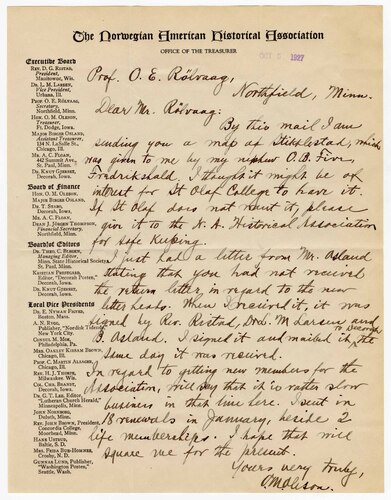 The Norwegian American Historical Association
OFFICE OF THE TREASURER
OCT 5 1927
Executive Board
REV. D. G. RISTAD,
President,
Manitowoc, Wis.
DR. L. M. LARSEN,
Vice President,
Urbana, Ill.
PROF. O. E. RÖLVAAG,
Secretary,
Northfield, Minn.
HON. O. M. OLESON,
Treasurer,
Ft. Dodge, Iowa.
MAJOR BIRGER OSLAND,
Assistant Treasurer,
134 N. LaSalle St.,
Chicago, Ill.
MR. A. C. FLOAN,
442 Summit Ave.,
St. Paul, Minn.
DR. KNUT GJERSET,
Decorah, Iowa.
Board of Finance
HON. O. M. OLESON,
MAJOR BIRGER OSLAND,
DR. T. STABO,
Decorah, Iowa.
DEAN J. JÖRGEN THOMPSON,
Financial Secretary,
Northfield, Minn.
Board of Editors
DR. THEO. C. BLEGEN,
Managing Editor,
Minn. State Historical Society
St. Paul, Minn.
KRISTIAN PRESTGARD,
Editor, "Decorah Posten",
Decorah, Iowa.
DR. KNUT GJERSET,
Decorah, Iowa.
Local Vice Presidents
DR. E. NYMAN FIGVED,
Boston, Mass.
A. N. RYGG,
Publisher, "Nordisk Tidende"
New York City.
CONSUL M. MOE,
Philadelphia, Pa.
MRS. OAKLEY KISSAM BROWN,
Chicago, Ill.
PROF. C. MARTIN ALSAGER,
Chicago, Ill.
REV. H. J. THORPE,
Milwaukee, Wis.
HON. CHR. BRANDT,
Decorah, Iowa.
DR. G. T. LEE, Editor,
"Lutheran Church Herald,"
Minneapolis, Minn.
JOHN NORSMOE,
Duluth, Minn.
REV. JOHN BROWN, President,
Concordia College,
Moorhead, Minn.
HANS USTRUD,
Baltic, S. D.
MRS. FRIDA BUE-HOMNES,
Crosby, N. D.
GUNNAR LUND, Publisher,
"Washington Posten",
Seattle, Wash.
Prof. O. E. Rölvaag,
Northfield, Minn.
Dear Mr. Rölvaag:
By this mail I am
sending you a map of Stiklestad, which
was given to me by my nephew O. B. Five,
Fredrikshald, I thought it might be of
interest for St Olaf College to have it.
If St Olaf does not want it, please
give it to the N. A. Historical Association
for safe Keeping.
I just had a letter from Mr. Osland
stating that you had not received
the return letter, in regard to the new
letter heads. When I received it, it was
signed by Rev. Ristad, Dr L. M Larsen and
B. Osland. I signed it and mailed it, the
same day it was received.
In regard to getting new members for the
Association, will say that it is rather slow
business in that line here. I sent in
18 renewals in January, beside 2
life memberships. I hope that will
square me for the present.
Yours very truly,
O. M. Oleson.